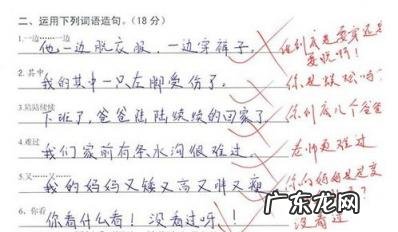 二、运用下列词语造句。(18分)
1.一边……一边
他一边脱衣服，一边穿裤子。
他到底是要穿还是要脱啊！
2.其中
我的其中一只左脚受伤了。
你是蜈蚣吗？
3.陆陆续续
下班了，爸爸陆陆续续的回家了。
你到底几个爸爸
4.难过
我们家前有条水沟很难过。
老师更难过
5.又……又……
我的妈妈又矮又高又胖又瘦
你的妈妈是变
6、你看
你看什么看！没看过呀！！
没看过
广东龙网